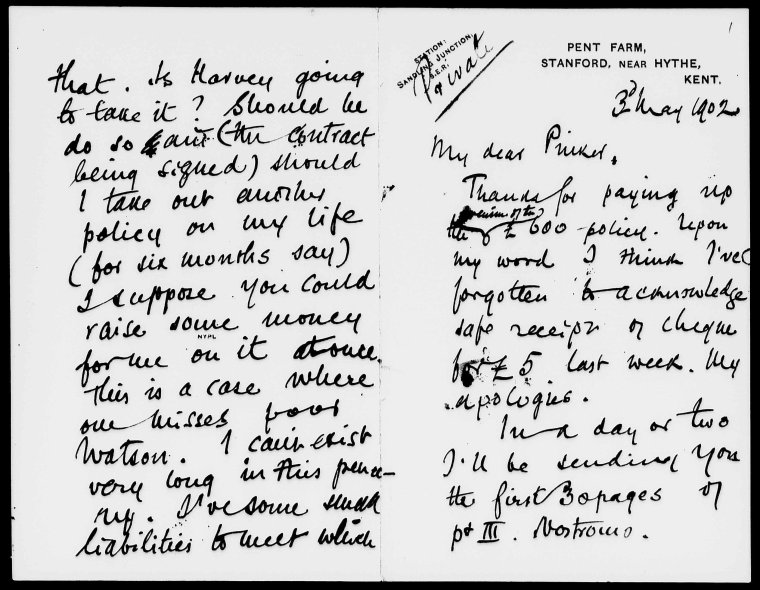 1
STATION:
SANDLING JUNCTION,
S.E.R.
Private
PENT FARM,
STANFORD, NEAR HYTHE,
KENT.
3d May 1902
My dear Pinker,
Thanks for paying up
the premium of the £ 600 policy. Upon
my word I think I've
forgotten to acknowledge
safe receipt of cheque
for £ 5 last week. My
apologies.
In a day or two
I'll be sending you
the first 30 pages of
pt III. Nostromo.
that. Is Harvey going
to take it? Should he
do so and (the contract
being signed) should
I take out another
policy on my life
(for six months say)
I suppose you could
raise some money
NYPL
for me on it at once.
This is a case where
one misses poor
Watson. I can't exist
very long in this penu-
ry. I've some small
liabilities to meet which